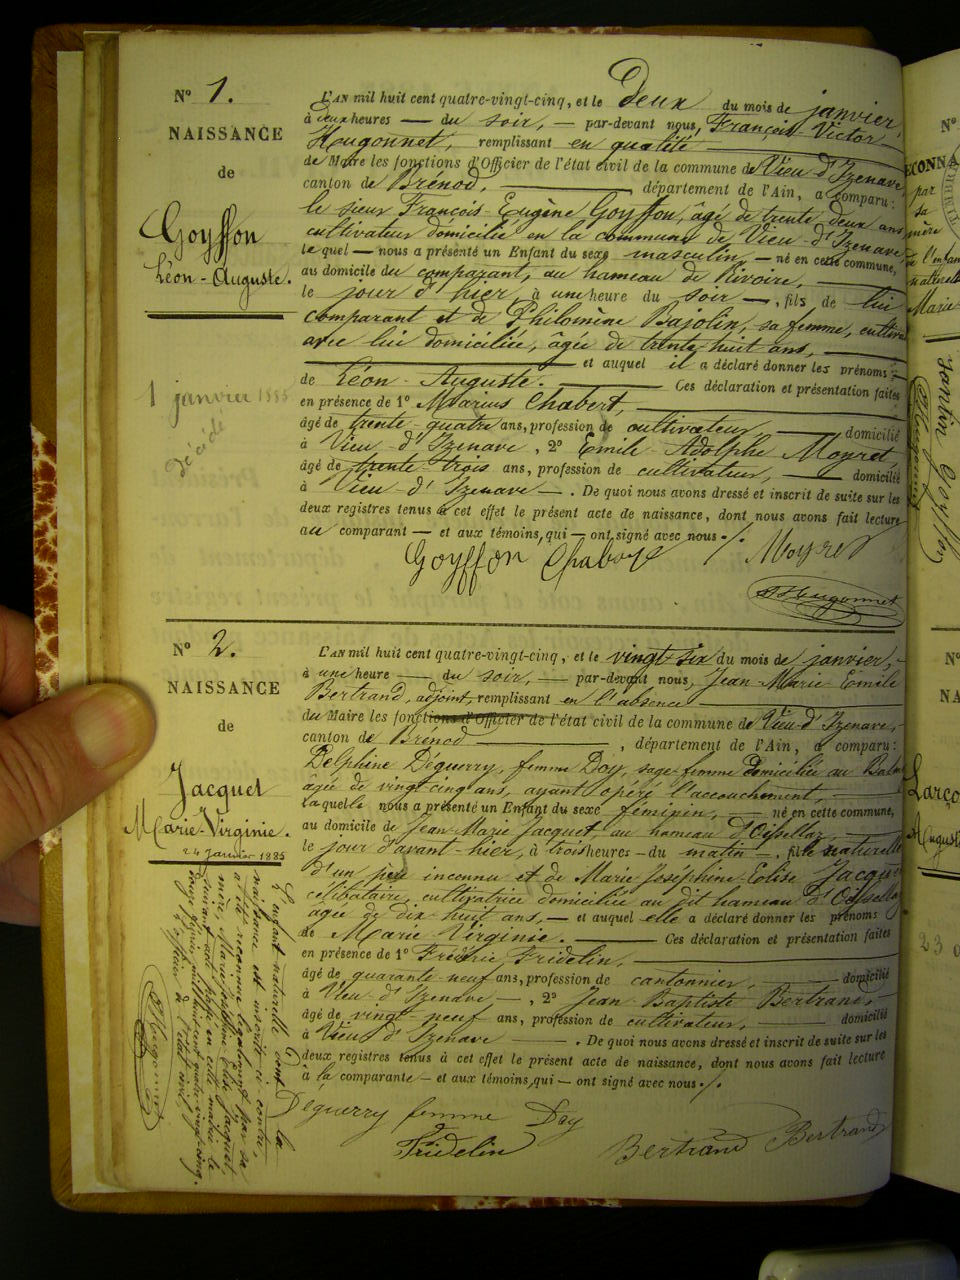 N° 1.
NAISSANCE
de
Goyffon
Léon-Auguste.
1 janvier 1885
décédé
L'AN mil huit cent quatre-vingt-cinq, et le deux du mois de janvier,
à deux heures — du soir, — par-devant nous, François-Victor
Hugonnet, remplissant en qualité
de Maire les fonctions d'Officier de l'état civil de la commune de Vieu-d'Izenave,
canton de Brénod, département de l'Ain, a comparu:
le sieur François-Eugène Goyffon, âgé de trente deux ans
cultivateur domicilié en la commune de Vieu-d'Izenave,
lequel — nous a présenté un Enfant du sexe masculin, — né en cette commune,
au domicile du comparant, au hameau de Rivoire,
le jour d'hier, à une heure du soir —, fils de lui
comparant et de Philomène Bajolin, sa femme,
avec lui domiciliée, âgée de trente-huit ans,
et auquel il a déclaré donner les prénoms
de Léon-Auguste. Ces déclaration et présentation faites
en présence de 1° Marius Chabert,
âgé de trente-quatre ans, profession de cultivateur, domicilié
à Vieu-d'Izenave, 2° Emile-Adolphe Moyret,
âgé de trente trois ans, profession de cultivateur, domicilié
à Vieu-d'Izenave —. De quoi nous avons dressé et inscrit de suite sur les
deux registres tenus à cet effet le présent acte de naissance, dont nous avons fait lecture
au comparant — et aux témoins, qui — ont signé avec nous ./.
Goyffon Moyret
Hugonnet
N° 2.
NAISSANCE
de
Jacquet
Marie-Virginie.
24 Janvier 1885
L'AN mil huit cent quatre-vingt-cinq, et le vingt-six du mois de janvier,
à une heure — du soir, — par-devant nous, Jean-Marie-Emile
Bertrand, adjoint, remplissant en l'absence
du Maire les fonctions d'Officier de l'état civil de la commune de Vieu-d'Izenave,
canton de Brénod, département de l'Ain, a comparu:
Delphine Deguerry, femme Doy, sage-femme domiciliée au
âgée de vingt cinq ans, ayant opéré l'accouchement,
Laquelle nous a présenté un Enfant du sexe féminin, — né en cette commune,
au domicile de Jean-Marie Jacquet au hameau d'Oisellaz,
le jour d'avant-hier, à trois heures — du matin —, fille naturelle
D'un père inconnu et de Marie-Joséphine-Élise Jacquet
célibataire, cultivatrice domiciliée au dit hameau d'Oisellaz
âgée de dix-huit ans, — et auquel elle a déclaré donner les prénoms
de Marie Virginie. Ces déclaration et présentation faites
en présence de 1° Frédéric Fridelin.
âgé de quarante-neuf ans, profession de cantonnier, domicilié
à Vieu-d'Izenave —, 2° Jean-Baptiste Bertrand,
âgé de vingt neuf ans, profession de cultivateur, domicilié
à Vieu d'Izenave. De quoi nous avons dressé et inscrit de suite sur les
deux registres tenus à cet effet le présent acte de naissance, dont nous avons fait lecture
à la comparante — et aux témoins, qui — ont signé avec nous ./.
Deguerry femme Doy
Fridelin Bertrand Bertrand
L'enfant naturelle dont la
naissance est inscrite ci-contre,
a été reconnue légalement par sa
mère, Marie Joséphine Élise Jacquet,
l'officier de l'état civil,
Hugonnet